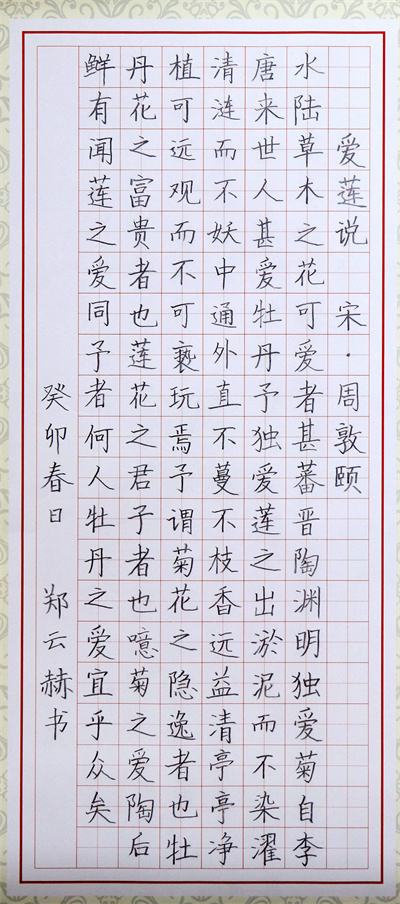 爱莲说 宋·周敦颐
水陆草木之花可爱者甚蕃晋陶渊明独爱菊自李
唐来世人甚爱牡丹予独爱莲之出淤泥而不染濯
清涟而不妖中通外直不蔓不枝香远益清亭亭净
植可远观而不可亵玩焉予谓菊花之隐逸者也牡
丹花之富贵者也莲花之君子者也噫菊之爱陶后
鲜有闻莲之爱同予者何人牡丹之爱宜乎众矣
癸卯春日 郑云赫书